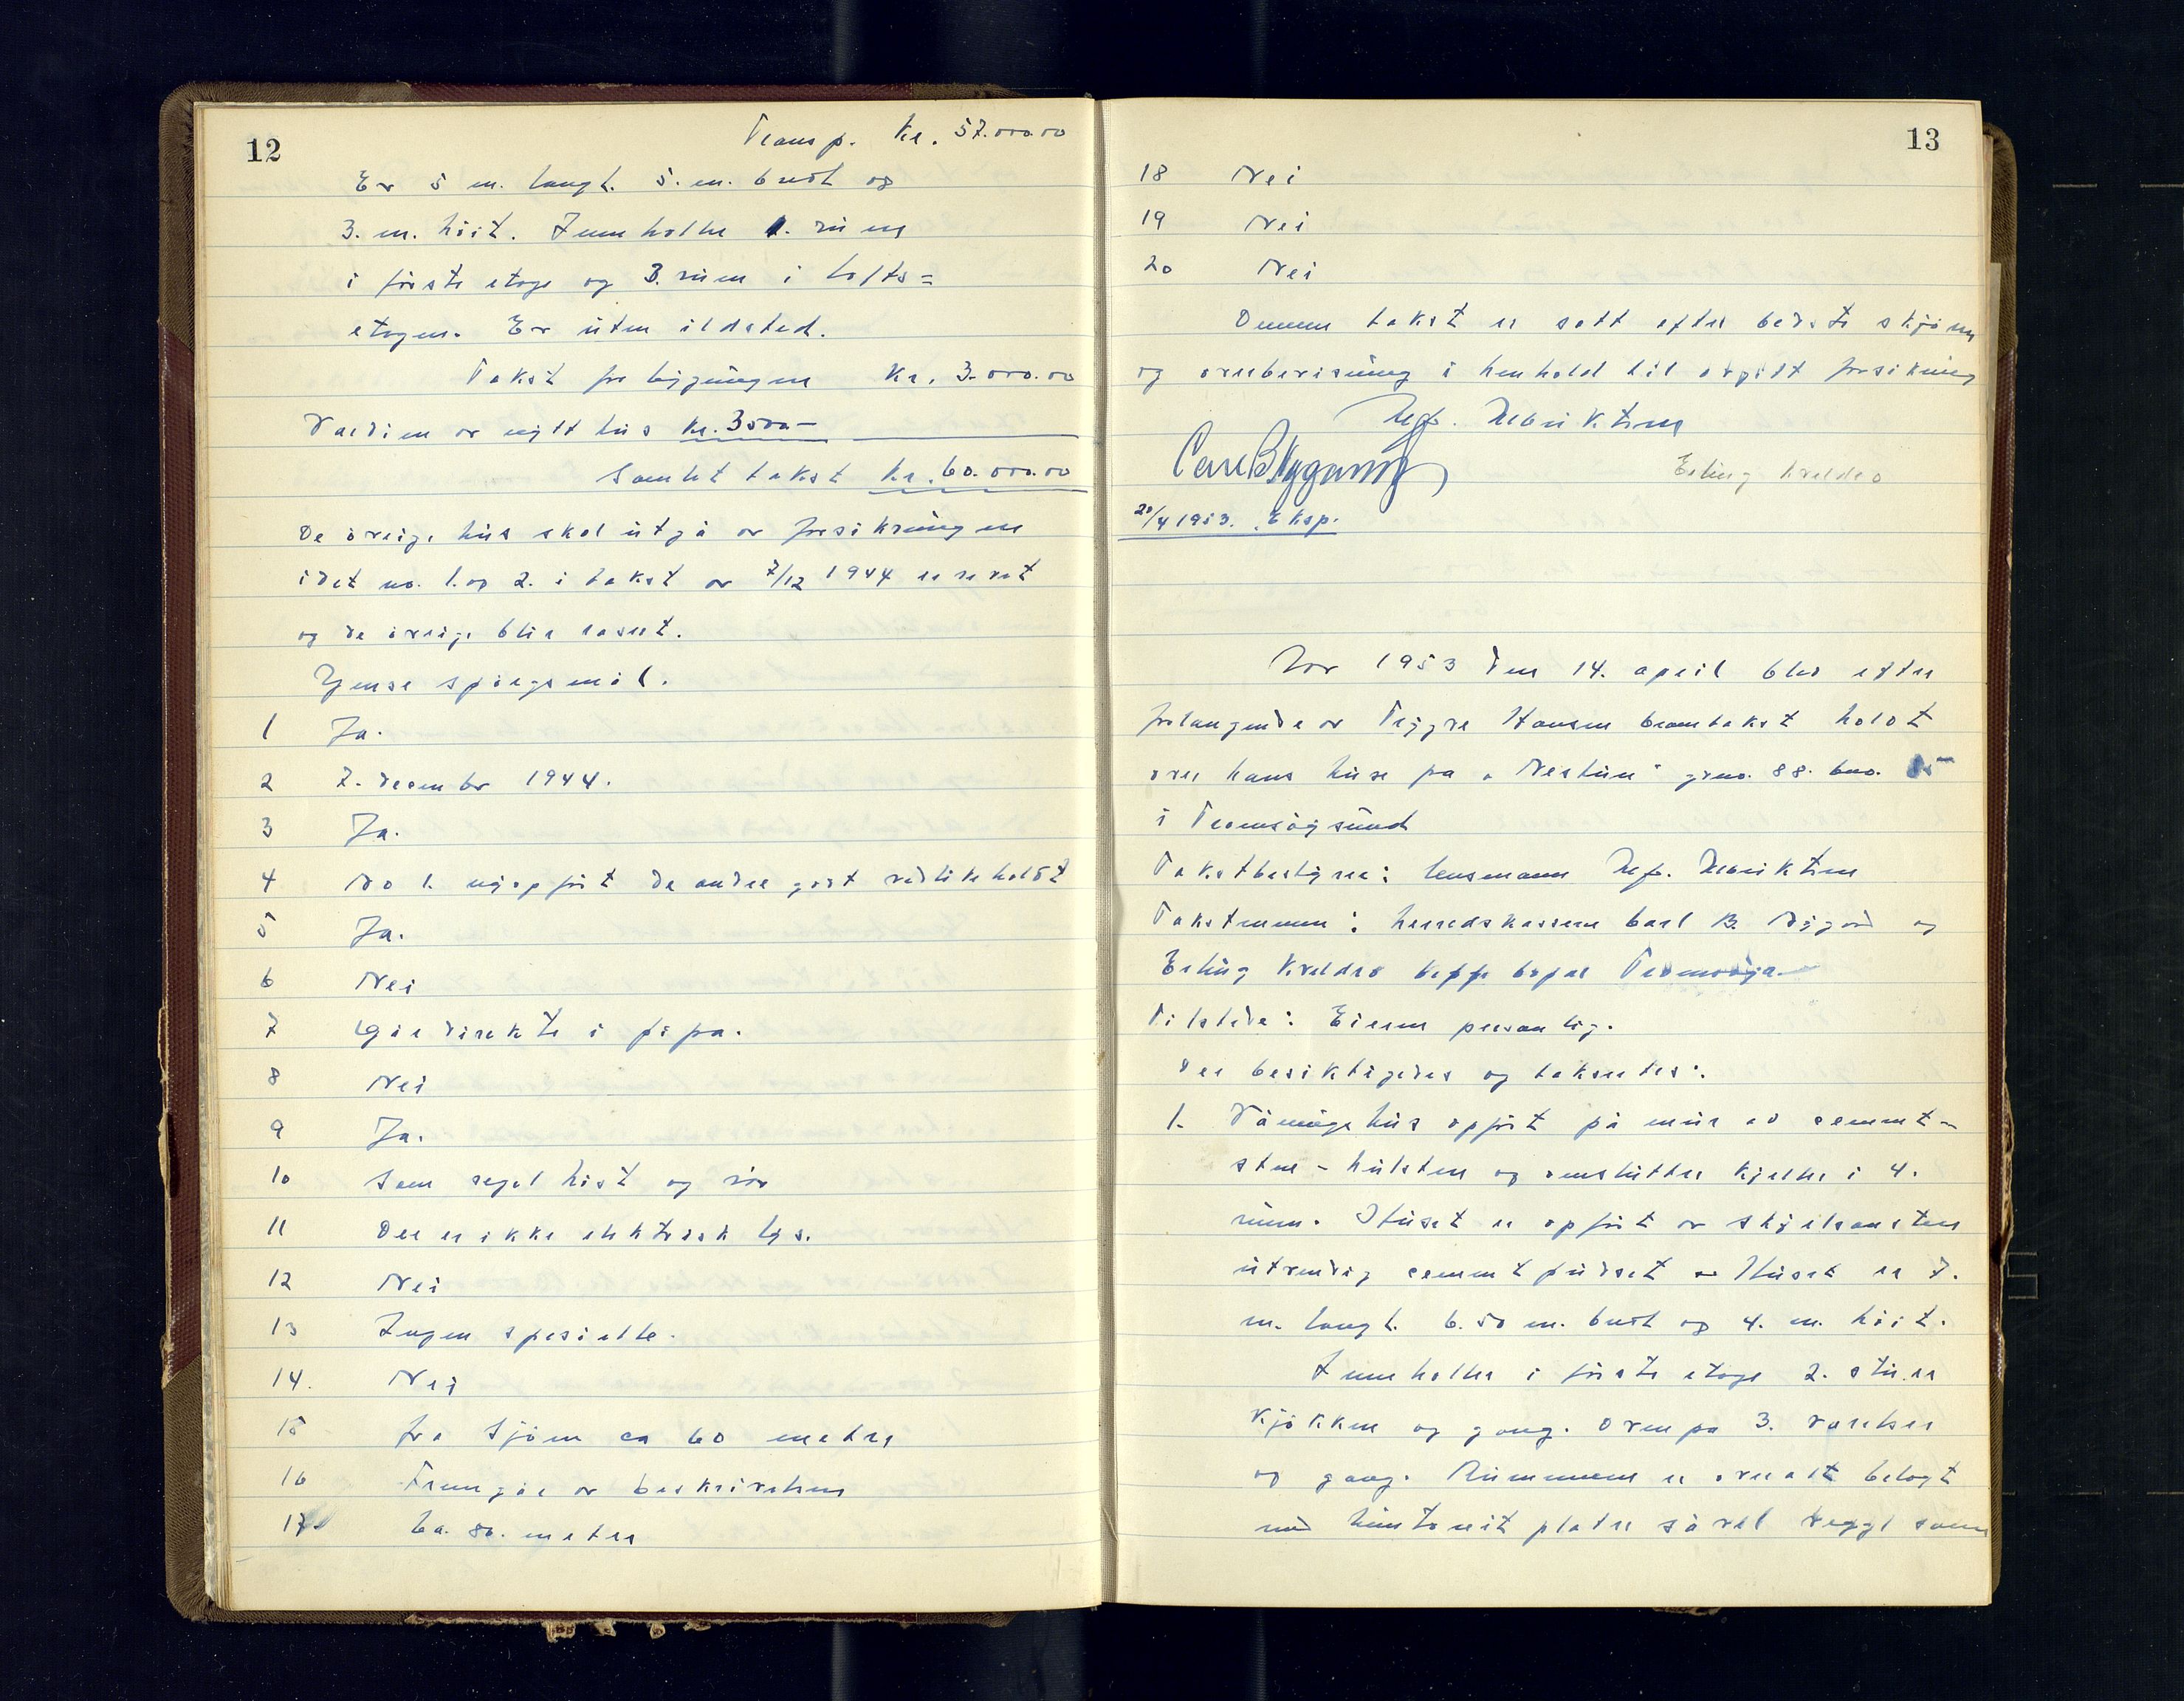 12
Transp. Kr. 57.000.00
Er 5 m. langt. 5. m. bredt og
3. m. höit. Inneholder 1. rum
i förste etage og 3. rum i lofts=
etagen. Er uten ildsted.
Takst for bygningen Kr. 3.000.00
Verdien av nytt hus kr. 3500-
Samlet takst kr. 60.000.00
De övrige hus skal utgå av forsikringen
idet no. 1. og 2. i takst av 7/12 1944 er revet
og de övrige blir raseret.
Gjense spörgsmål.
1 Ja.
2 7. decembr 1944.
3 Ja.
4 No 1. nyopfört de andre godt vedlikeholdt
5 Ja.
6 Nei
7 Går direkte i pipa.
8 Nei
9 Ja.
10 Som regel höst og vår
11 Der er ikke elektrisk lys.
12 Nei
13 Ingen spesielle.
14. Nei
15 fra sjöen ca 60 meter
16 Fremgår av beskrivelsen
17. Ca. 80. meter
13
18 Nei
19 Nei
20 Nei
Denne takst er satt efter bedste skjönn
og overbevisning i henhold til avgitt forsikring
Carl B Nygaard
Erling Kveldro
20/4 1953. Eksp.
År 1953 den 14. april blev efter
forlangende av Trygve Hansen branntakst holdt
over hans huse på "Nestun" grno. 88. bno.
i Tromsöysund
Takstbestyrer: lensmann
Takstmenn: herredskasserer Carl B. Nygård og
Erling Kveldro begge bopæl Tromsöya
Tilstede: Eieren personlig.
Der besiktigedes og takseredes:
1. Våningshus opfört på mur av sement-
sten - hulsten og omslutter kjeller i 4.
rum. Huset er opfört av skjelsansten
utvendig sement pudset - Huset er 7.
m. langt. 6.50 m. bredt og 4. m. höit.
Inneholder i förste etage 2. stuer
kjökken og gang. Ovenpå 3. værelser
og gang. Rummene er overalt belagt
med huntonit plater såvel vegger som